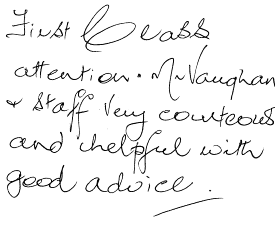 First Class
attention. Mr Vaughan
& Staff Very courteous
and helpful with
good advice.